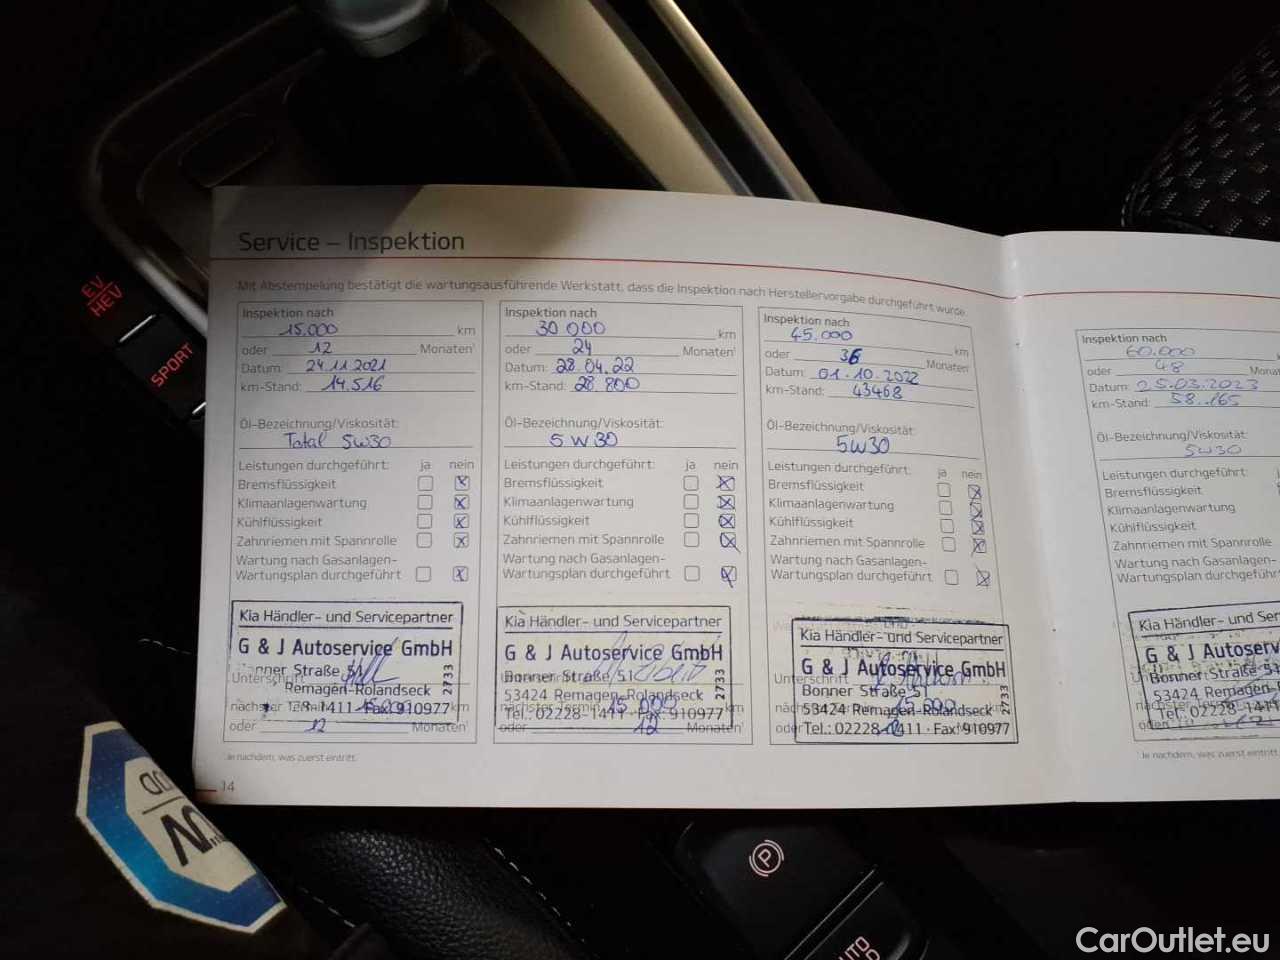 Service – Inspektion
Mit Abstempelung bestätigt die wartungsausführende Werkstatt, dass die Inspektion nach Herstellervorgabe durchgeführt wurde.
Inspektion nach
15.000 km
oder 12 Monaten¹
Datum: 24.11.2021
km-Stand: 14.516
Öl-Bezeichnung/Viskosität:
Total 5W30
Leistungen durchgeführt: ja nein
Bremsflüssigkeit
Klimaanlagenwartung
Kühlflüssigkeit
Zahnriemen mit Spannrolle
Wartung nach Gasanlagen-
Wartungsplan durchgeführt
Kia Händler- und Servicepartner
G & J Autoservice GmbH
Bonner Straße 51
Remagen-Rolandseck
2733
Unterschrift
nächster Termin 15.000 km
1411 · Fax: 910977
oder 12 Monaten¹
Je nachdem, was zuerst eintritt.
14
Inspektion nach
30 000 km
oder 24 Monaten¹
Datum: 28.04.22
km-Stand: 28 800
Öl-Bezeichnung/Viskosität:
5 W 30
Leistungen durchgeführt: ja nein
Bremsflüssigkeit
Klimaanlagenwartung
Kühlflüssigkeit
Zahnriemen mit Spannrolle
Wartung nach Gasanlagen-
Wartungsplan durchgeführt
Kia Händler- und Servicepartner
G & J Autoservice GmbH
Bonner Straße 51
53424 Remagen-Rolandseck
Tel.: 02228-1411 · Fax: 910977
2733
Unterschrift
nächster Termin 15 000 km
oder 12 Monaten¹
Inspektion nach
45.000 km
oder 36 Monaten¹
Datum: 01.10.2022
km-Stand: 43468
Öl-Bezeichnung/Viskosität:
5W30
Leistungen durchgeführt: ja nein
Bremsflüssigkeit
Klimaanlagenwartung
Kühlflüssigkeit
Zahnriemen mit Spannrolle
Wartung nach Gasanlagen-
Wartungsplan durchgeführt
Kia Händler- und Servicepartner
G & J Autoservice GmbH
Bonner Straße 51
53424 Remagen-Rolandseck
Tel.: 02228-1411 · Fax: 910977
2733
Unterschrift
nächster Termin 15.000
oder 12
Inspektion nach
60.000
oder 48 Monat
Datum: 25.03.2023
km-Stand: 58.165
Öl-Bezeichnung/Viskosität:
5W30
Leistungen durchgeführt:
Bremsflüssigkeit
Klimaanlagenwartung
Kühlflüssigkeit
Zahnriemen mit Spannrolle
Wartung nach Gasanlagen-
Wartungsplan durchgeführt
Kia Händler- und Serv
G & J Autoservic
Bonner Straße 5
53424 Remagen-
Tel.: 02228-1411
oder 12
Je nachdem, was zuerst eintritt.
EV
HEV
SPORT
P
AUTO
CarOutlet.eu